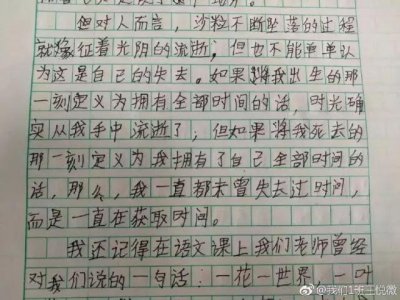 但对人而言，沙粒不断坠落的过程
就像征着光阴的流逝，但也不能单单认
为这是自己的失去。如果将我出生的那
一刻定义为拥有全部时间的话，时光确
实从我手中流逝了，但如果将我死去的
那一刻定义为我拥有了自己全部时间的
话，那么，我一直都未曾失去过时间，
而是一直在获取时间。
我还记得在语文课上我们老师曾经
对我们说的一句话：一花一世界，一叶
@我们1班王悦微